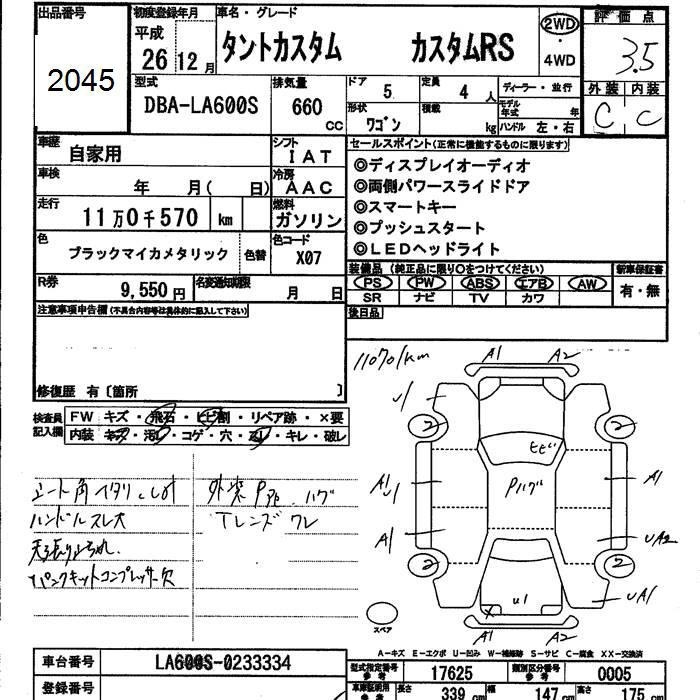 出品番号
2045
初度登録年月
平成
26年 12月
車名・グレード
タントカスタム カスタムRS
2WD
・
4WD
評価点
3.5
外装 内装
C C
型式
DBA-LA600S
排気量
660 CC
ドア
5
定員
4人
形状
ワゴン
積載
kg
ディーラー・並行
モデル年式 年
ハンドル 左・右
車歴
自家用
シフト
IAT
車検
年 月( 日)
冷房
AAC
走行
11万0千570 km
燃料
ガソリン
色
ブラックマイカメタリック
色替
色コード
X07
R券
9,550円
名変通知期限
月 日
セールスポイント(正常に機能するものに限ります)
◎ディスプレイオーディオ
◎両側パワースライドドア
◎スマートキー
◎プッシュスタート
◎LEDヘッドライト
装備品 (純正品に限り○をつけてください)
PS PW ABS エアB AW
SR ナビ TV カワ
新車保証書
有・無
後日品
注意事項申告欄(不具合内容等は具体的に記入して下さい)
修復歴 有〔箇所 〕
検査員
記入欄
FW キズ・飛石・ヒビ割・リペア跡・×要
内装 キズ・汚レ・コゲ・穴・スレ・キレ・破レ
ハンドルスレ大
パンクキットコンプレッサー欠
Tレンズワレ
110701km
A1 A2
U1
2 2
ヒビ
Pハゲ
A1 U1
A1
A1
UA2
2 2
UA1
U1
X
A1 A2
スペア
A-キズ E-エクボ U-凹み W-補修跡 S-サビ C-腐食 XX-交換済
車台番号
LA600S-0233334
登録番号
型式指定番号
参考
17625
類別区分番号
参考
0005
車庫証明用
参考
長さ 339 cm 幅 147 cm 高さ 175 cm